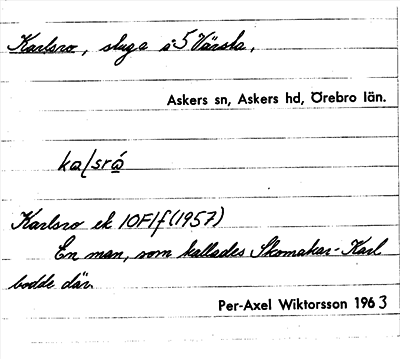 Karlsro, stuga å 5 Värsta.
Askers sn, Askers hd, Örebro län.
kaḷsrọ́
Karlsro ek 10F1f (1957)
En man, som kallades Skomakar-Karl
bodde där.
Per-Axel Wiktorsson 1963